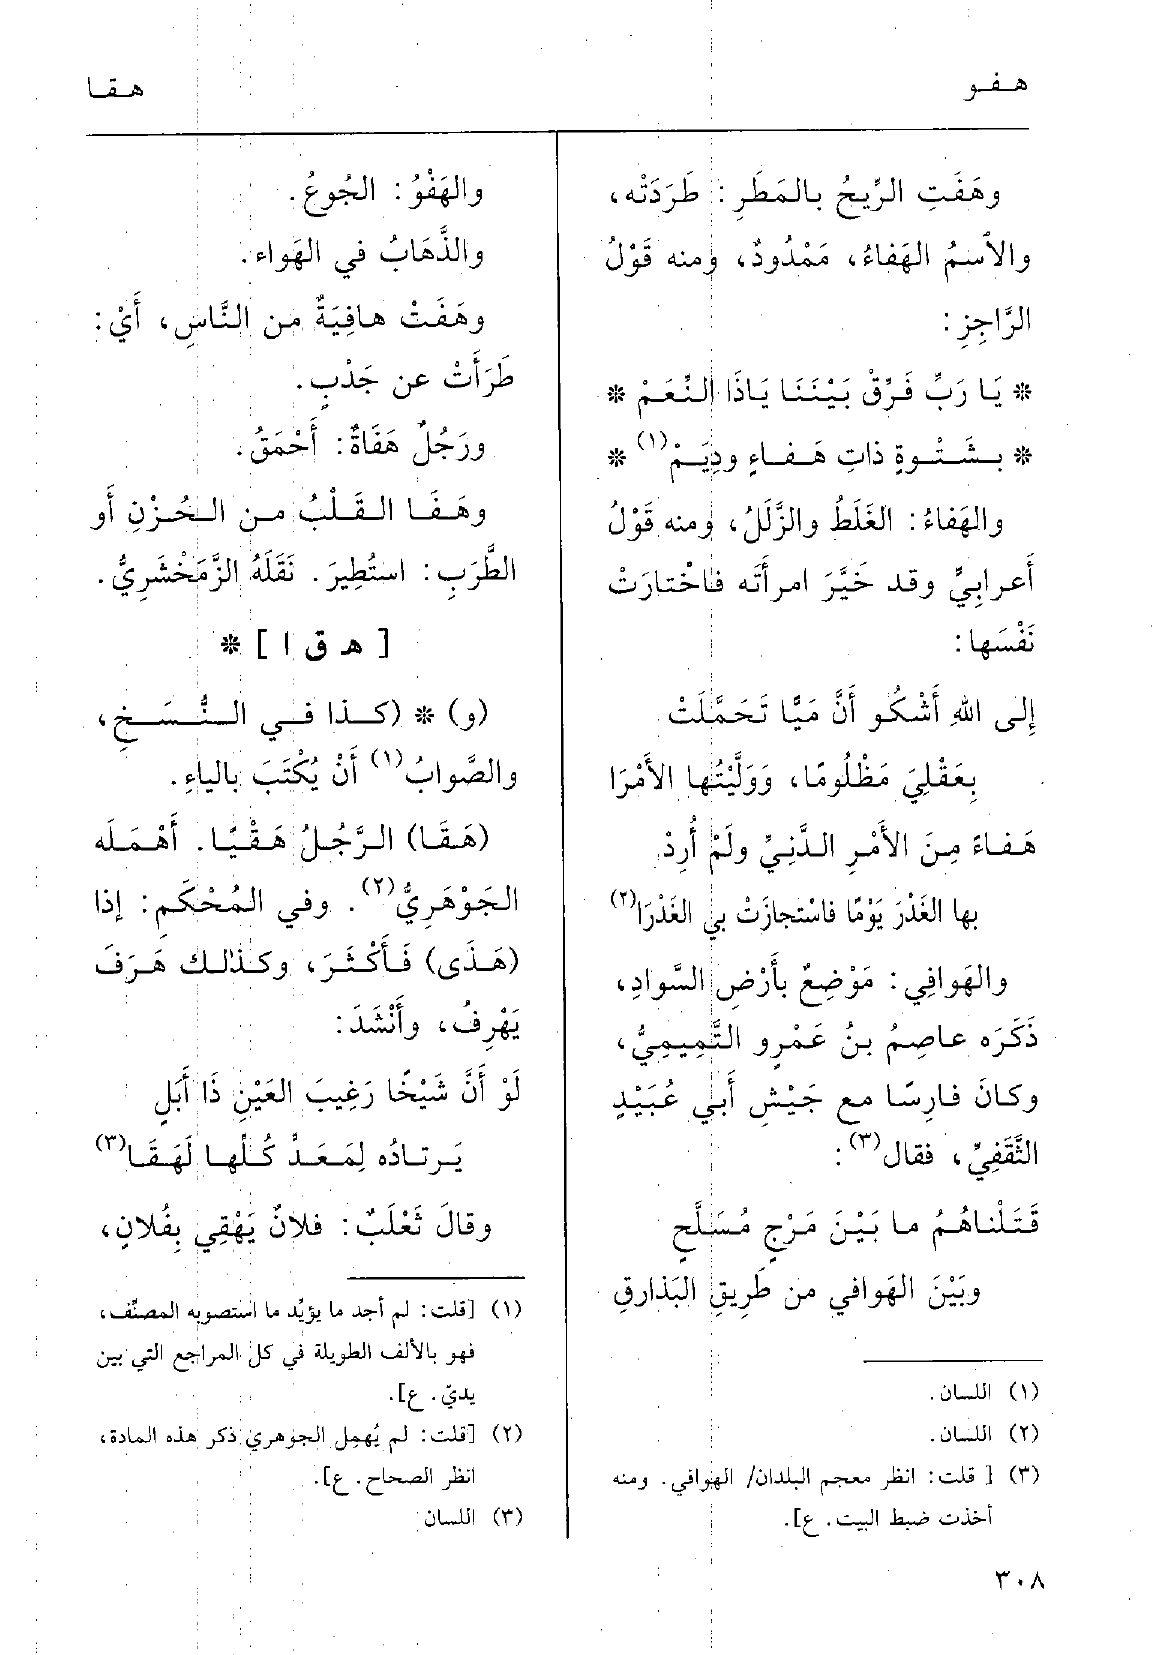 هـفـو
هـقـا
وهَفَتِ الرِّيحُ بالمَطَرِ : طَرَدَتْه،
والاسمُ الهَفاءُ، مَمْدُودٌ، ومنه قَوْلُ
الرَّاجِزِ :
* يَا رَبِّ فَرِّقْ بَيْنَنَا يَاذَا النِّعَمْ *
* بِشَتْوةٍ ذاتِ هَفاءٍ ودِيَمْ(١) *
والهَفاءُ : الغَلَطُ والزَّلَلُ، ومنه قَوْلُ
أعرابِيٍّ وقد خَيَّرَ امرأتَه فاخْتارَتْ
نَفْسَها :
إلى اللهِ أَشْكُو أَنَّ مَيًّا تَحَمَّلَتْ
بِعَقْلِيَ مَظْلُومًا، وَوَلَّيْتُها الأَمْرَا
هَفاءً مِنَ الأَمْرِ الدَّنِيِّ ولَمْ أُرِدْ
بها الغَدْرَ يَوْمًا فاسْتجازَتْ بيَ الغَدْرَا(٢)
والهَوافِي : مَوْضِعٌ بأَرْضِ السَّوادِ،
ذَكَرَه عاصِمُ بنُ عَمْرٍو التَّمِيمِيُّ،
وكانَ فارِسًا مع جَيْشِ أَبي عُبَيْدٍ
الثَّقَفِيِّ، فقال(٣) :
قَتَلْناهُمُ ما بَيْنَ مَرْجِ مُسَلَّحٍ
وبَيْنَ الهَوافي من طَرِيقِ البَذارِقِ
(١) اللسان .
(٢) اللسان .
(٣) [ قلت : انظر معجم البلدان/ الهوافي . ومنه
أخذت ضبط البيت . ع].
والهَفْوُ : الجُوعُ .
والذَّهَابُ في الهَواء .
وهَفَتْ هافِيَةٌ من النَّاسِ، أَيْ :
طَرَأَتْ عن جَدْبٍ .
ورَجُلٌ هَفَاةٌ : أَحْمَقُ .
وهَفَا القَلْبُ من الحُزْنِ أو
الطَّرَبِ : استُطِيرَ . نَقَلَهُ الزَّمَخْشَرِيُّ .
[ هـ ق ا ] *
(و) * (كذا في النُّسَخِ،
والصَّوابُ(١) أَنْ يُكْتَبَ بالياءِ .
(هَقَا) الرَّجُلُ هَقْيًا . أَهْمَله
الجَوْهَرِيُّ(٢) . وفي المُحْكَمِ : إذا
(هَذَى) فَأَكْثَرَ، وكذلك هَرَفَ
يَهْرِفُ، وأَنْشَدَ :
لَوْ أَنَّ شَيْخًا رَغِيبَ العَيْنِ ذَا أَبَلٍ
يَرتادُه لِمَعَدٍّ كُلِّها لَهَقَا(٣)
وقالَ ثَعْلَبٌ : فلانٌ يَهْقِي بِفُلانٍ،
(١) [قلت : لم أجد ما يؤيِّد ما استصوبه المصنِّف،
فهو بالألف الطويلة في كل المراجع التي بين
يديّ . ع].
(٢) [قلت : لم يُهمِل الجوهري ذكر هذه المادة،
انظر الصحاح . ع].
(٣) اللسان
٣٠٨